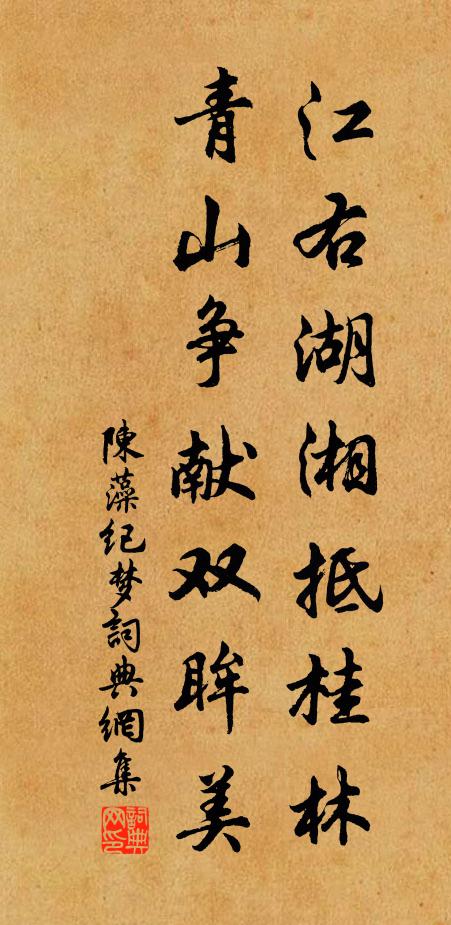 江右湖湘抵桂林
青山争献双眸美
陳藻纪梦詞典網集
詞典网印